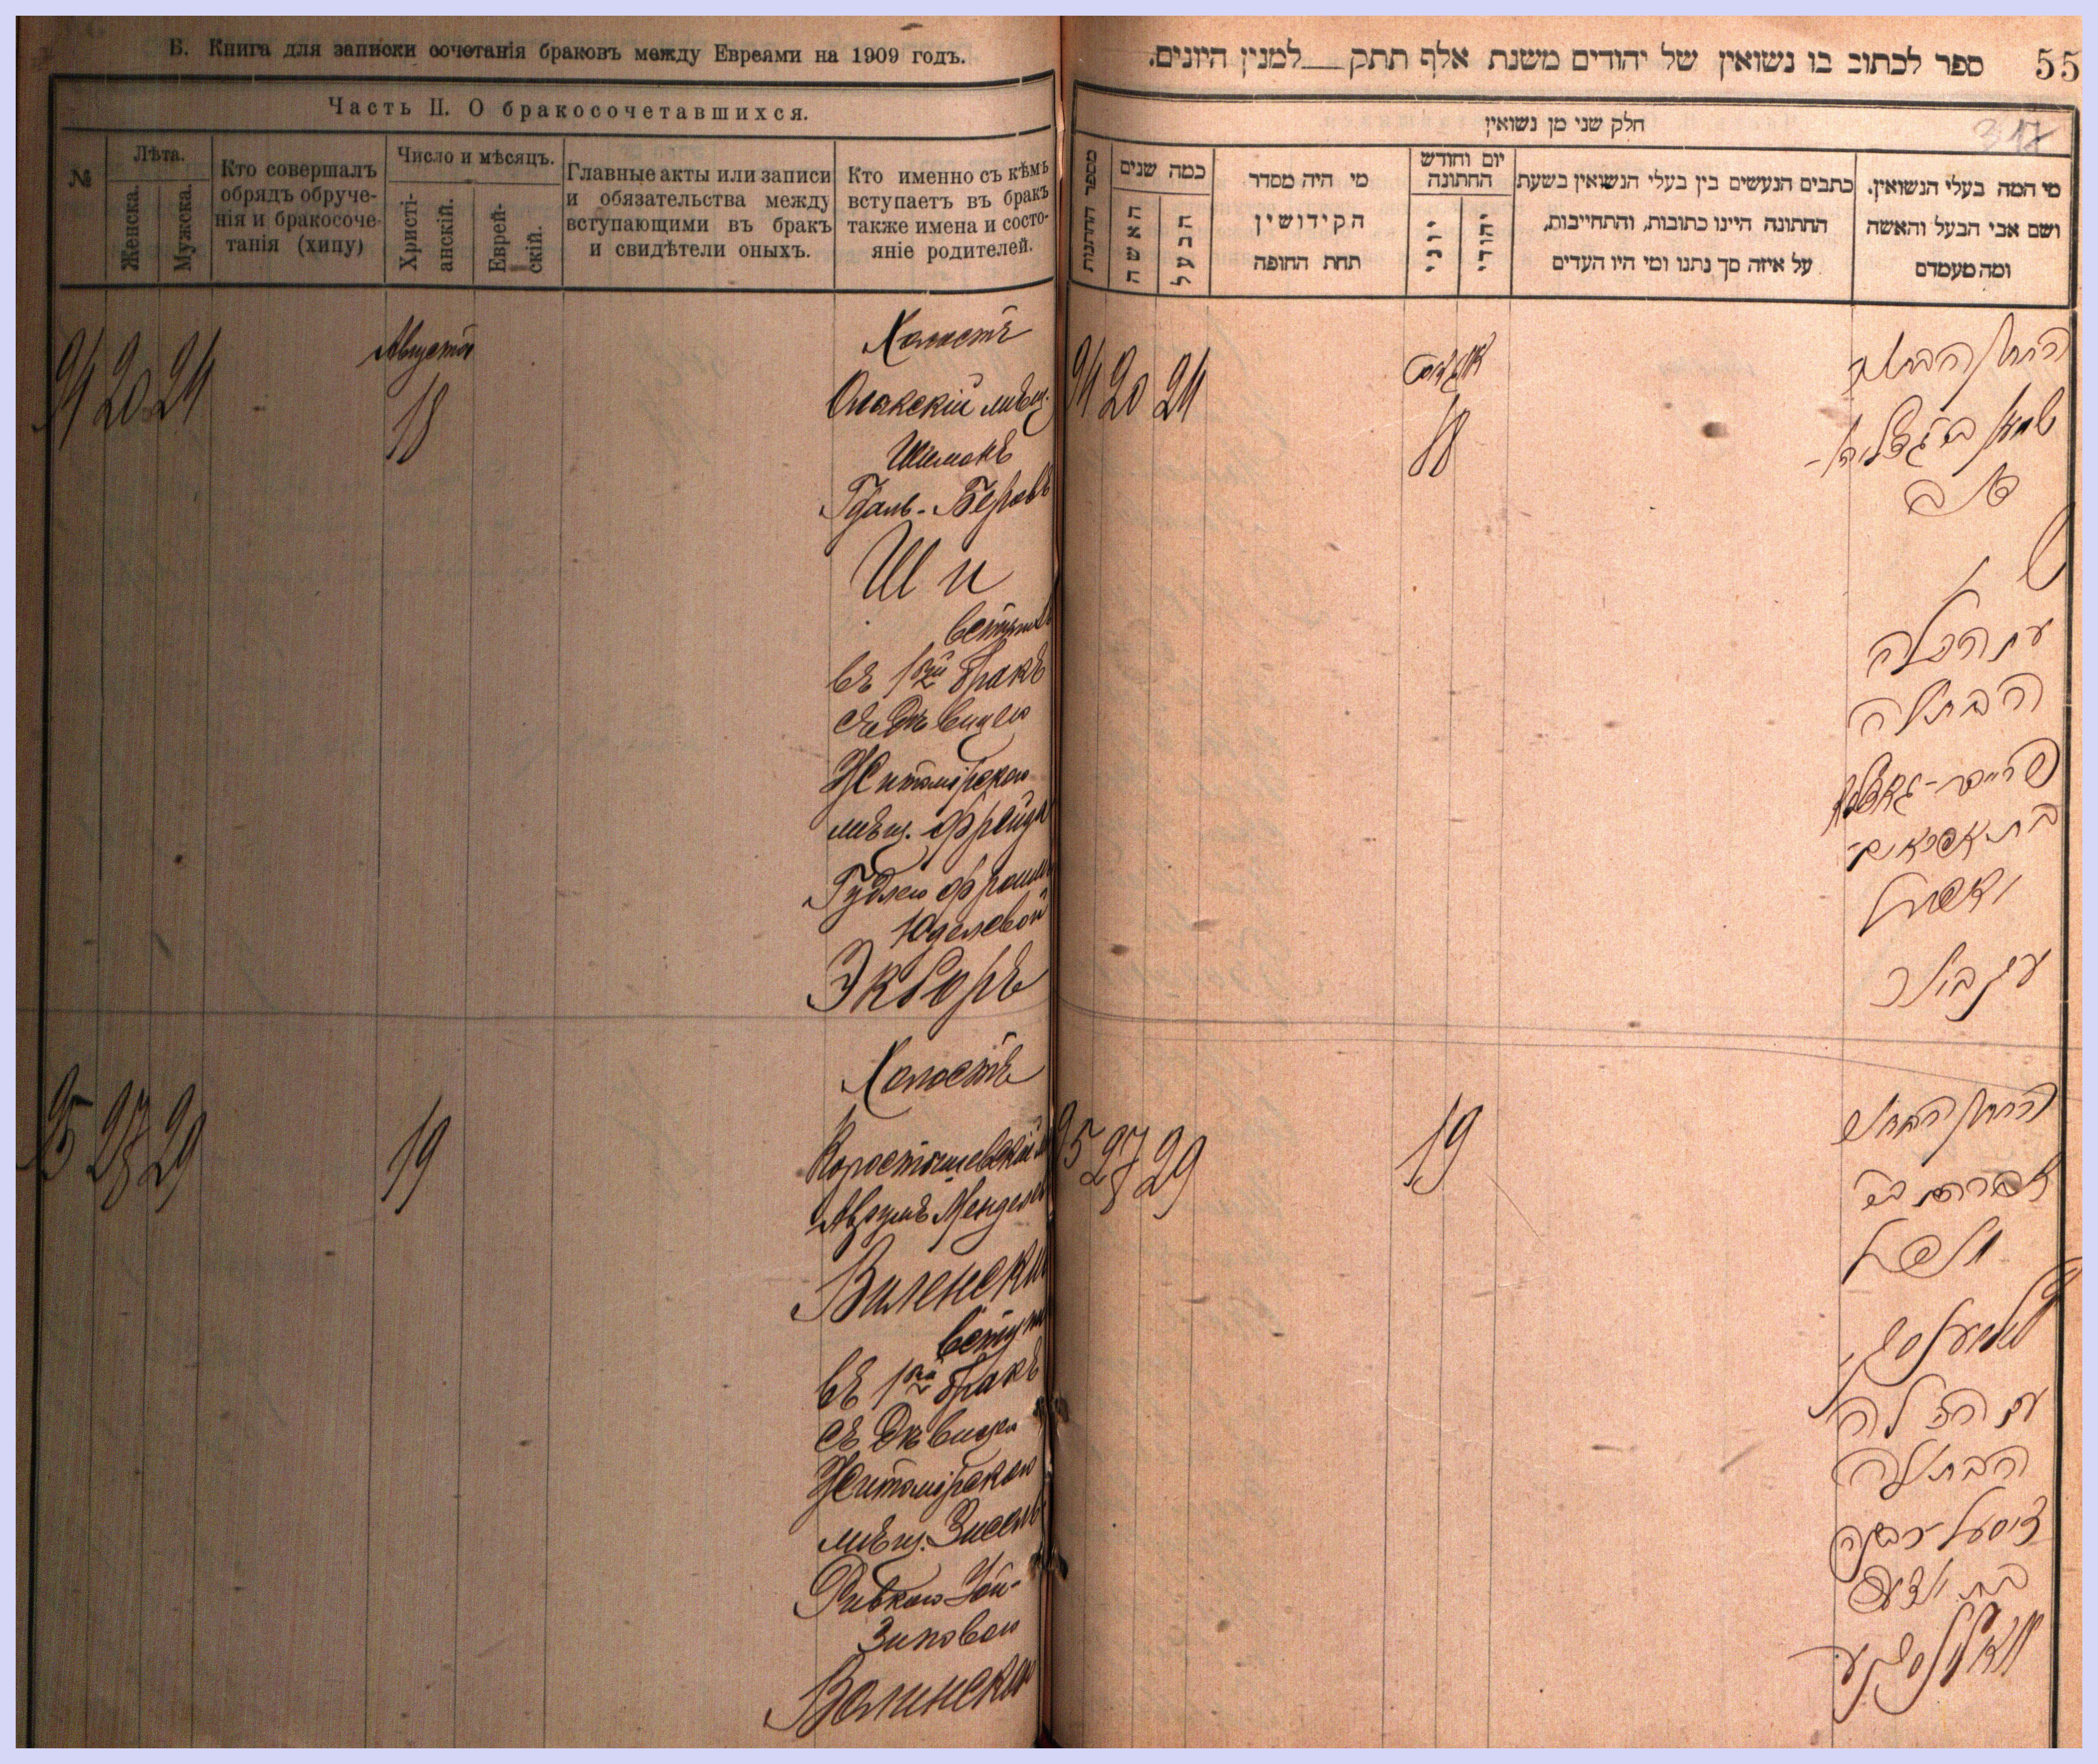 Б. Книга для записки сочетанія браковъ между Евреями на 1909 годъ.
Часть II. О бракосочетавшихся.
№
Лѣта.
Женска.
Мужска.
Кто совершалъ
обрядъ обруче-
нія и бракосоче-
танія (хипу)
Число и мѣсяцъ.
Христі-
анскій.
Еврей-
скій.
Главные акты или записи
и обязательства между
вступающими въ бракъ
и свидѣтели оныхъ.
Кто именно съ кѣмъ
вступаетъ въ бракъ
также имена и состо-
яніе родителей.
94 20 24
Августа
18
Холостъ
мѣщ.
Шимонъ
Гдаль-Беровъ
Ши
вступилъ
въ 1вый бракъ
съ Дѣвицею
Житомірскою
мѣщ. Фрейда
Гудлею Фроим
Юделевой
Экборъ
95 27 29
19
Холостъ
Коростышевскій м
Аврумъ Менделев
Виленски
вступи
въ 1вый бракъ
съ Дѣвицею
Житомірскою
мѣщ. Зисель
Ривкою Уй-
Зиновою
Волинскою
55
ספר לכתוב בו נשואין של יהודים משנת אלף תתק—למנין היונים.
317
חלק שני מן נשואין
מספר החתונות
כמה שנים
האשה
הבעל
מי היה מסדר
הקידושין
תחת החופה
יום וחודש
החתונה
יוני
יהודי
כתבים הנעשים בין בעלי הנשואין בשעת
החתונה היינו כתובות, והתחייבות,
על איזה סך נתנו ומי היו העדים
מי המה בעלי הנשואין.
ושם אבי הבעל והאשה
ומה מעמדם
94 20 24
אווגוסט
18
החתן הבחור
שמעון בר גדליה-
בער
שי
עם הכלה
הבתולה
פריידא-גאדליע
בת אפרים-
יודל
עקבויר
95 27 29
19
החתן הבחור
אברהם בר
מענדל
ווילענסקי
עם הכלה
הבתולה
זיסעל רבקה
בת
וואלינסקע